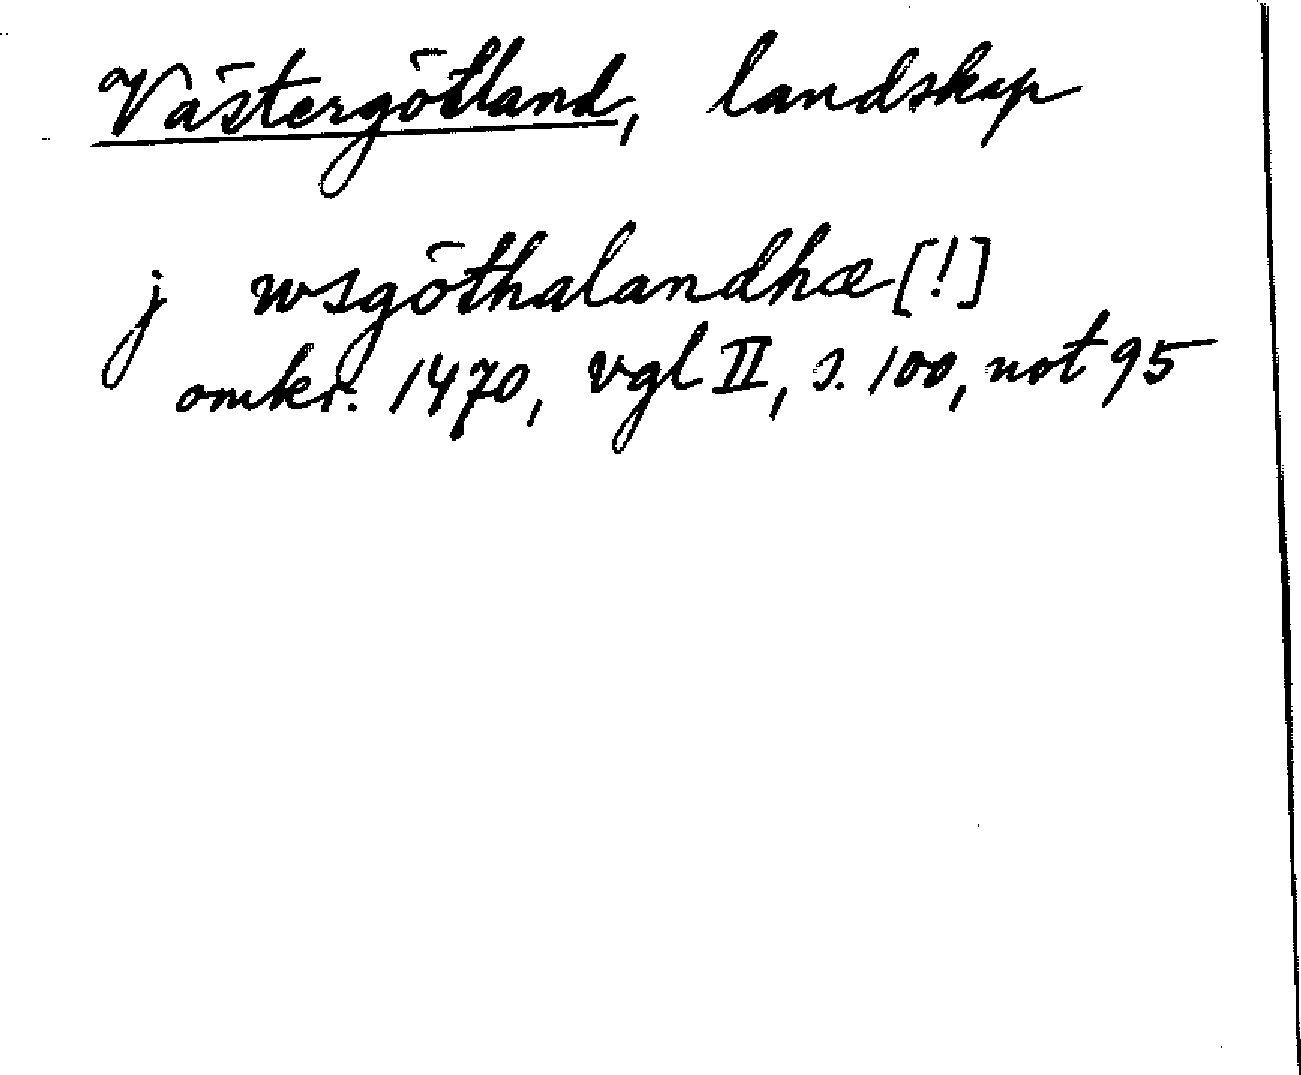 Västergötland, landskap
j wsgöthalandhæ [!]
omkr. 1470, Vgl II, s. 100, not 95